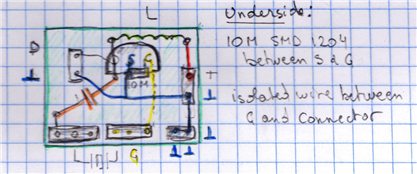 L
Underside:
10M SMD 1204
between S & G
isolated wire between
G and connector
D
S G
10M
+
G